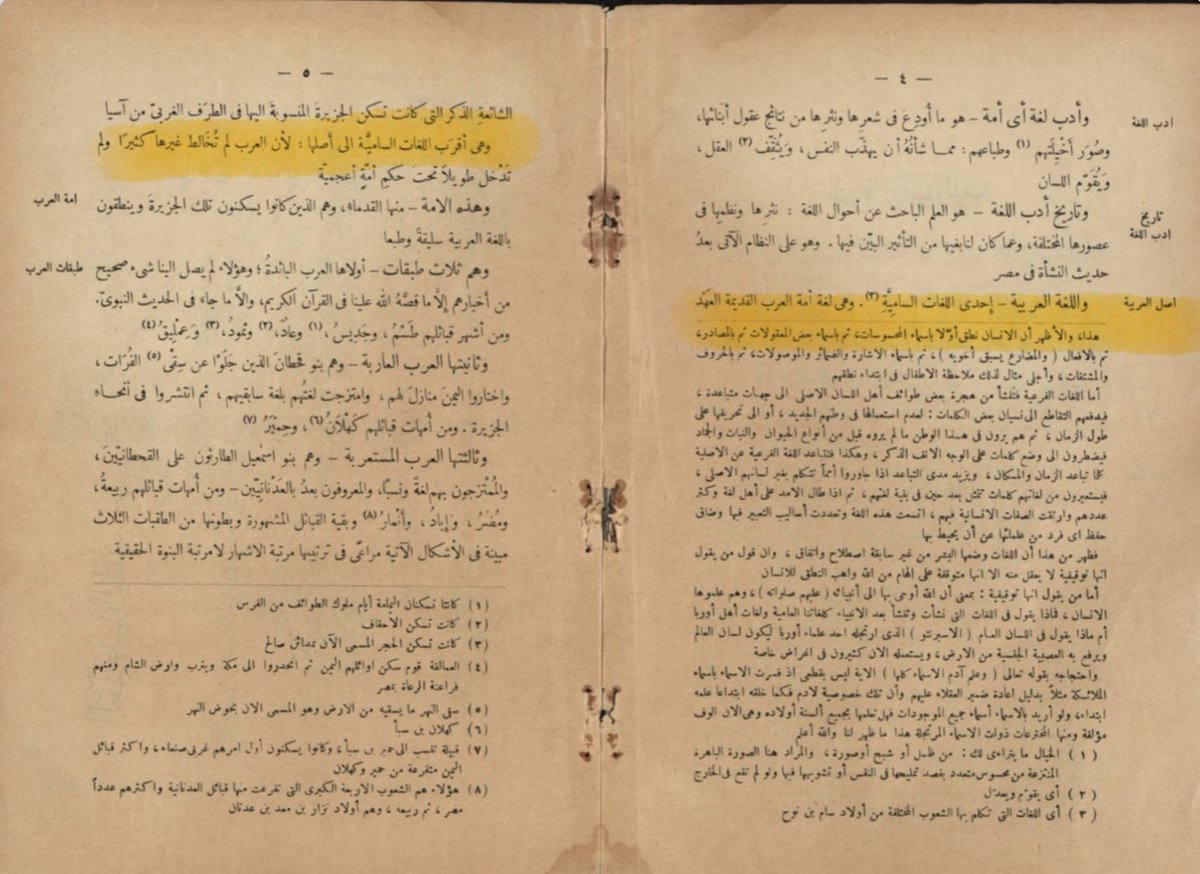 — ٤ —
ادب اللغة
وأدب لغة أى أمة – هو ما أُودِعَ فى شعرِها ونثرِها من نتائج عقول أبنائها،
وصُوَر أَخْيِلَتهم (١) وطباعهم : ممـا شأنُهُ أن يهذّب النفس، ويُثَقِّف (٢) العقل،
ويُقَوّم اللسان
تاريخ
ادب اللغة
وتاريخ أدب اللغة – هو العلم الباحث عن أحوال اللغة : نثرِها ونظمِها فى
عصورها المختلفة، وعما كان لنابغيها من التأثير البيّن فيها . وهو على النظام الآتى بعدُ
حديث النشأة فى مصر
اصل العربية
واللغة العربية – إحدى اللغات الساميَّةِ (٣) . وهى لغة أمة العرب القديمة العَهْد
هذا، والأظهر أن الانسان نطق أوّلا بأسماء المحسوسات، ثم بأسماء بعض المعقولات ثم بالمصادر،
ثم بالافعال ( والمضارع يسبق أخويه ) ، ثم بأسماء الاشارة والضمائر والموصولات، ثم بالحروف
والمشتقات ، وأجلى مثال لذلك ملاحظة الاطفال فى ابتداء نطقهم
أما اللغات الفرعية فتنشأ من هجرة بعض طوائف أهل اللسان الاصلى الى جهات متباعدة ،
فيدفعهم التقاطع الى نسيان بعض الكلمات : لعدم استعمالها فى وطنهم الجديد ، أو الى تحريفها على
طول الزمان ، ثم هم يرون فى هـذا الوطن ما لم يروه قبل من أنواع الحيوان والنبات والجماد
فيضطرون الى وضع كلمات على الوجه الآنف الذكر ، وهكذا فتتباعد اللغة الفرعية عن الاصلية
كلما تباعد الزمان والمـكان ، ويزيد مدى التباعد اذا جاوروا أمماً تتكلم بغير لسانهم الاصلى ،
فيستعيرون من لغاتهم كلمات تمثل بعد حين فى بقية لغتهم ، ثم اذا طال الامد على أهل لغة وكثر
عددهم وارتقت الصفات الانسانية فيهم ، اتسعت هذه اللغة وتعددت أساليب التعبير فيها وضاق
حفظ أى فرد من علمائها عن أن يحيط بها
فظهر من هذا أن اللغات وضعها البشر من غير سابقة اصطلاح واتفاق ، وان قول من يقول
انها توقيفية لا يعقل منه الا انها متوقفة على إلهام من الله واهب النطق للانسان
أما من يقول انها توقيفية : بمعنى أن الله أوحى بها الى أنبيائه ( عليهم صلواته ) ، وهم علموها
الانسان ، فماذا يقول فى اللغات التى نشأت وتنشأ بعد الانبياء كلغاتنا العامية ولغات أهل أوربا
أم ماذا يقول فى اللسان العـام ( الاسبرنتو ) الذى ارتجله احد علماء أوربا ليكون لسان العالم
ويرفع به العصبية الجنسية من الارض ، ويستعمله الان كثيرون فى اغراض خاصة
واحتجاجه بقوله تعالى ( وعلم آدم الاسماء كلها ) الاية ليس بقطعى اذ فسرت الاسماء بأسماء
الملائـكة مثلاً بدليل اعادة ضمير العقلاء عليهم وأن تلك خصوصية لادم فكما خلقه ابتداءا علمه
ابتداء، ولو أريد بالاسماء أسماء جميع الموجودات فهل تعلمها بجميع ألسنة أولاده وهى الان الوف
مؤلفة ومنها المخترعات ذوات الاسماء المرتجلة هذا ما ظهر لنا والله أعلم
( ١ ) الخيال ما يتراءى لك : من ظـل أو شبح أوصورة ، والمراد هنا الصورة الباهرة
المنتزعة من محسوس متعدد بقصد تمليحها فى النفس أو تشويهها فيها ولو لم تقع فى الخارج
( ٢ ) أى يقوّم ويعدّل
( ٣ ) أى اللغات التى تتكلم بها الشعوب المختلفة من أولاد سام بن نوح
— ٥ —
الشائعةِ الذكر التى كانت تسكن الجزيرةَ المنسوبةَ اليها فى الطرَف الغربىّ من آسيا
وهى أقرَب اللغات الساميَّة الى أصلها : لأن العرب لم تُخالط غيرها كثيرًا ولم
تَدْخل طويلاً تحتَ حكمِ أُمّةٍ أعجميّة
امة العرب
وهـذه الامة – منها القدماء، وهم الذين كانوا يسكنون تلك الجزيرةَ وينطقون
باللغة العربية سليقةً وطبعا
طبقات العرب
وهم ثلاث طبقات – أولاها العرب البائدةُ ؛ وهؤلاء لم يصل الينا شىء صحيح
من أخبارهم إلَّا ما قصَّهُ الله علينا فى القرآن الكريم، والَّا ما جاء فى الحديث النبوىّ.
ومن أشهر قبائلهم طَسْمٌ ، وجَدِيسُ، (١) وعادٌ، (٢) وثمودُ، (٣) وَعِمْلِيقُ (٤)
وثانيتها العرب العاربة – وهم بنو قحطانَ الذين جَلَوْا عن سِقْىِ (٥) الفُرَات ،
واختاروا اليمنَ منازلَ لهم ، وامتزجت لغتُهم بلغة سابقيهم ، ثم انتشروا فى أنحـاء
الجزيرة . ومن أُمهات قبائلهم كَهْلَانُ (٦) ، وحِمْيَرُ (٧)
وثالثتها العرب المستعربة – وهم بنو اسمٰعيل الطارئون على القحطانيّين ،
والمُمْتزجون بهم لغةً ونسبًا، والمعروفون بعدُ بالعَدْنانِيِّين – ومن أُمهات قبائلهم ربيعةُ،
ومُضَرُ ، وَإيادُ ، وأَنْمارُ (٨) وبقية القبائل المشهورة وبطونها من الطبقات الثلاث
مبينة فى الأشكال الآتية مراعًى فى ترتيبها مرتبة الاشهار لامرتبة البنوة الحقيقية
( ١ ) كانتا تسكنان اليمامة أيام ملوك الطوائف من الفرس
( ٢ ) كانت تسكن الاحقاف
( ٣ ) كانت تسكن الحجر المسمى الآن بمدائن صالح
( ٤ ) العمالقة قوم سكن اوائلهم اليمن ثم انحدروا الى مكة ويثرب وارض الشام ومنهم
فراعنة الرعاة بمصر
( ٥ ) سقى النهر ما يسقيه من الارض وهو المسمى الان بحوض النهر
( ٦ ) كهلان بن سبأ
( ٧ ) قبيلة تنسب الى حمير بن سبأ، وكانوا يسكنون أول امرهم غربى صنعاء، واكثر قبائل
اليمن متفرعة من حمير وكهلان
( ٨ ) هؤلاء هم الشعوب الاربعة الكبرى التى تفرعت منها قبائل العدنانية واكثرهم عدداً
مضر ، ثم ربيعه ، وهم أولاد نزار بن معد بن عدنان